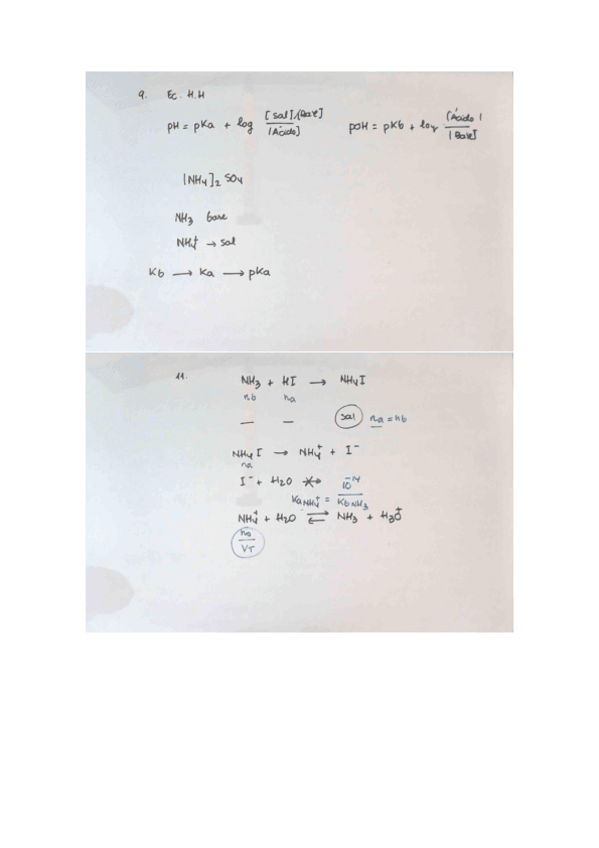 9. Ec. H.H
pH = pKa + log [sal]/(Base] / [Ácido] pOH = pKb + log [Ácido] / [Base]
[NH4]2 SO4
NH3 base
NH4+ → sal
Kb → Ka → pKa
11. NH3 + HI → NH4I
nb na
— — sal na = nb
NH4I → NH4+ + I-
na
I- + H2O ↛ 10^-14
Ka NH4+ = Kb NH3
NH4+ + H2O ⇌ NH3 + H3O+
na
VT